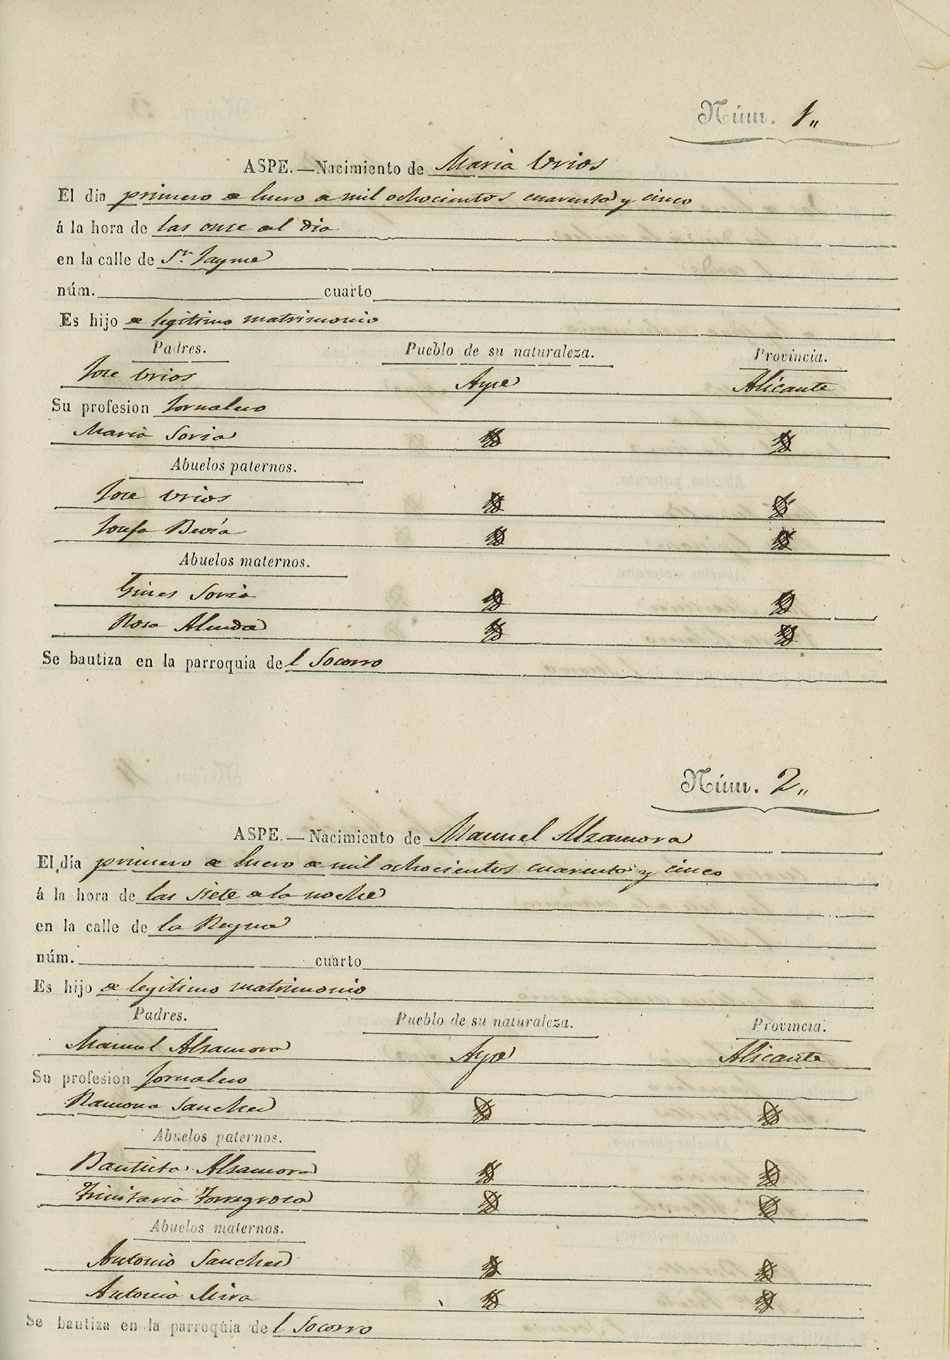 Núm. 1„
ASPE.—Nacimiento de Maria Vrios
El dia primero de Enero de mil ochocientos cuarenta y cinco
á la hora de las onse del dia
en la calle de Sn. Jayme
núm. cuarto
Es hijo de legitimo matrimonio
Padres. Pueblo de su naturaleza. Provincia.
Jose Vrios Aspe Alicante
Su profesion Jornalero
Maria Soria
Abuelos paternos.
Jose Vrios
Josefa
Abuelos maternos.
Gines Soria
Rosa
Se bautiza en la parroquia del Socorro
Núm. 2„
ASPE.—Nacimiento de Manuel Alzamora
El día primero de Enero de mil ochocientos cuarenta y cinco
á la hora de las siete de la noche
en la calle de la Reyna
núm. cuarto
Es hijo de legitimo matrimonio
Padres. Pueblo de su naturaleza. Provincia.
Manuel Alzamora Aspe Alicante
Su profesion Jornalero
Ramona Sanchez
Abuelos paternos.
Bautista Alzamora
Trinitaria Torregrosa
Abuelos maternos.
Antonio Sanchez
Antonia Mira
Se bautiza en la parroquia del Socorro